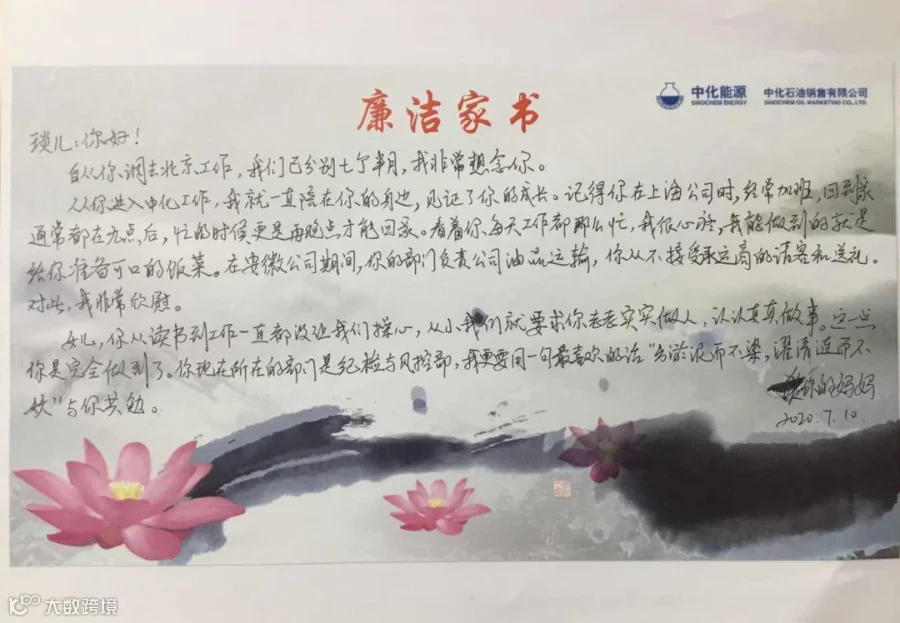 廉洁家书
中化能源
SINOCHEM ENERGY
中化石油销售有限公司
SINOCHEM OIL MARKETING CO.,LTD.
琰儿:你好!
自从你调去北京工作,我们已分别七个半月,我非常想念你。
从你进入中化工作,我就一直陪在你的身边,见证了你的成长。记得你在上海公司时,经常加班,回到家
通常都在九点后,忙的时候更是再晚点才能回家。看着你每天工作都那么忙,我很心疼,我能做到的就是
给你准备可口的饭菜。在安徽公司期间,你的部门负责公司油品运输,你从不接受承运商的请客和送礼。
对此,我非常欣慰。
女儿,你从读书到工作一直都没让我们操心,从小我们就要求你老老实实做人,认认真真做事。这一点
你是完全做到了。你现在所在的部门是纪检与风控部,我更要用一句最喜欢的话"出淤泥而不染,濯清涟而不
妖"与你共勉。
你的妈妈
2020.7.10
大数跨境